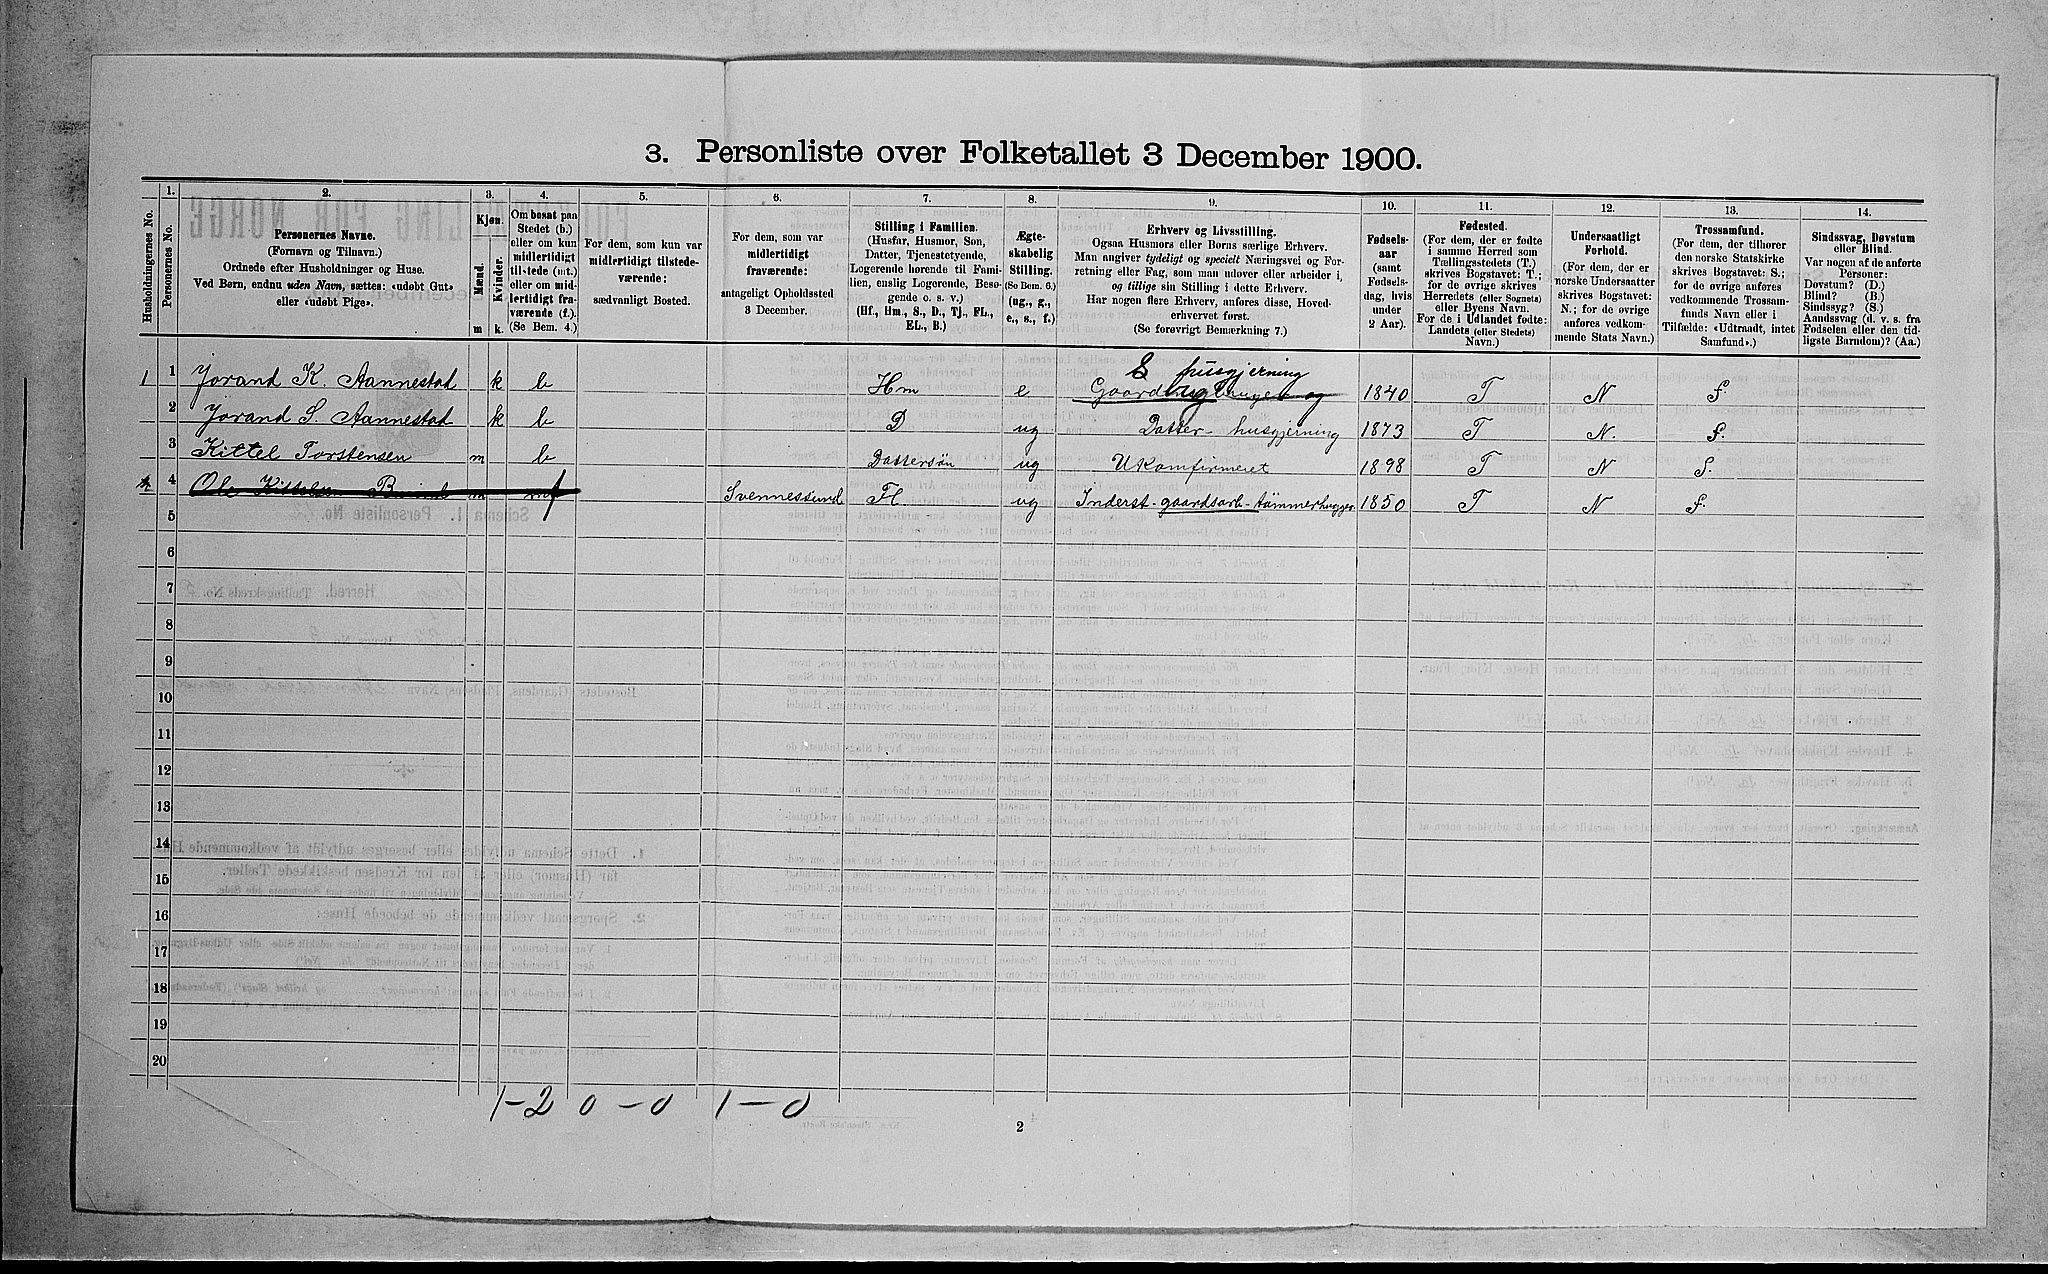 3. Personliste over Folketallet 3 December 1900.
Husholdningernes No.
1.
Personernes No.
2.
Personernes Navne.
(Fornavn og Tilnavn.)
Ordnede efter Husholdninger og Huse.
Ved Børn, endnu uden Navn, sættes: «udøbt Gut»
eller «udøbt Pige».
3.
Kjøn.
Mænd.
Kvinder.
m
k.
4.
Om bosat paa
Stedet (b.)
eller om kun
midlertidigt
tilstede (mt.)
eller om mid-
lertidigt fra-
værende (f.).
(Se Bem. 4.)
5.
For dem, som kun var
midlertidigt tilstede-
værende:
sædvanligt Bosted.
6.
For dem, som var
midlertidigt
fraværende:
antageligt Opholdssted
3 December.
7.
Stilling i Familien.
(Husfar, Husmor, Søn,
Datter, Tjenestetyende,
Logerende hørende til Fami-
lien, enslig Logerende, Besø-
gende o. s. v.)
(Hf., Hm., S., D., Tj., FL.,
EL., B.)
8.
Ægte-
skabelig
Stilling.
(Se Bem. 6.)
(ug., g.,
e., s., f.)
9.
Erhverv og Livsstilling.
Ogsaa Husmors eller Børns særlige Erhverv.
Man angiver tydeligt og specielt Næringsvei og For-
retning eller Fag, som man udøver eller arbeider i,
og tillige sin Stilling i dette Erhverv.
Har nogen flere Erhverv, anføres disse, Hoved-
erhvervet først.
(Se forøvrigt Bemærkning 7.)
10.
Fødsels-
aar
(samt
Fødsels-
dag, hvis
under
2 Aar).
11.
Fødested.
(For dem, der er fødte
i samme Herred som
Tællingsstedets (T.)
skrives Bogstavet: T.;
for de øvrige skrives
Herredets (eller Sognets)
eller Byens Navn.
For de i Udlandet fødte:
Landets (eller Stedets)
Navn.)
12.
Undersaatligt
Forhold.
(For dem, der er
norske Undersaatter
skrives Bogstavet:
N.; for de øvrige
anføres vedkom-
mende Stats Navn.)
13.
Trossamfund.
(For dem, der tilhører
den norske Statskirke
skrives Bogstavet: S.;
for de øvrige anføres
vedkommende Trossam-
funds Navn eller i
Tilfælde: «Udtraadt, intet
Samfund».)
14.
Sindssvag, Døvstum
eller Blind.
Var nogen af de anførte
Personer:
Døvstum? (D.)
Blind? (B.)
Sindssyg? (S.)
Aandssvag (d. v. s. fra
Fødselen eller den tid-
ligste Barndom)? (Aa.)
husgjerning
1 1 Jorand K. Aannestad k b Hm e Gaardbruger og 1840 T N S.
2 Jorand S. Aannestad k b D ug Datter - husgjerning 1873 T N. S.
3 Kittel Torstensen m b Dattersøn ug Ukonfirmeret 1898 T N S.
4 Ole Kittelsen m f Svennessund FL ug Inderst - gaardsarb - tømmerhugger 1850 T N S.
5
6
7
8
9
10
11
12
13
14
15
16
17
18
19
20
1-2 0-0 1-0
2